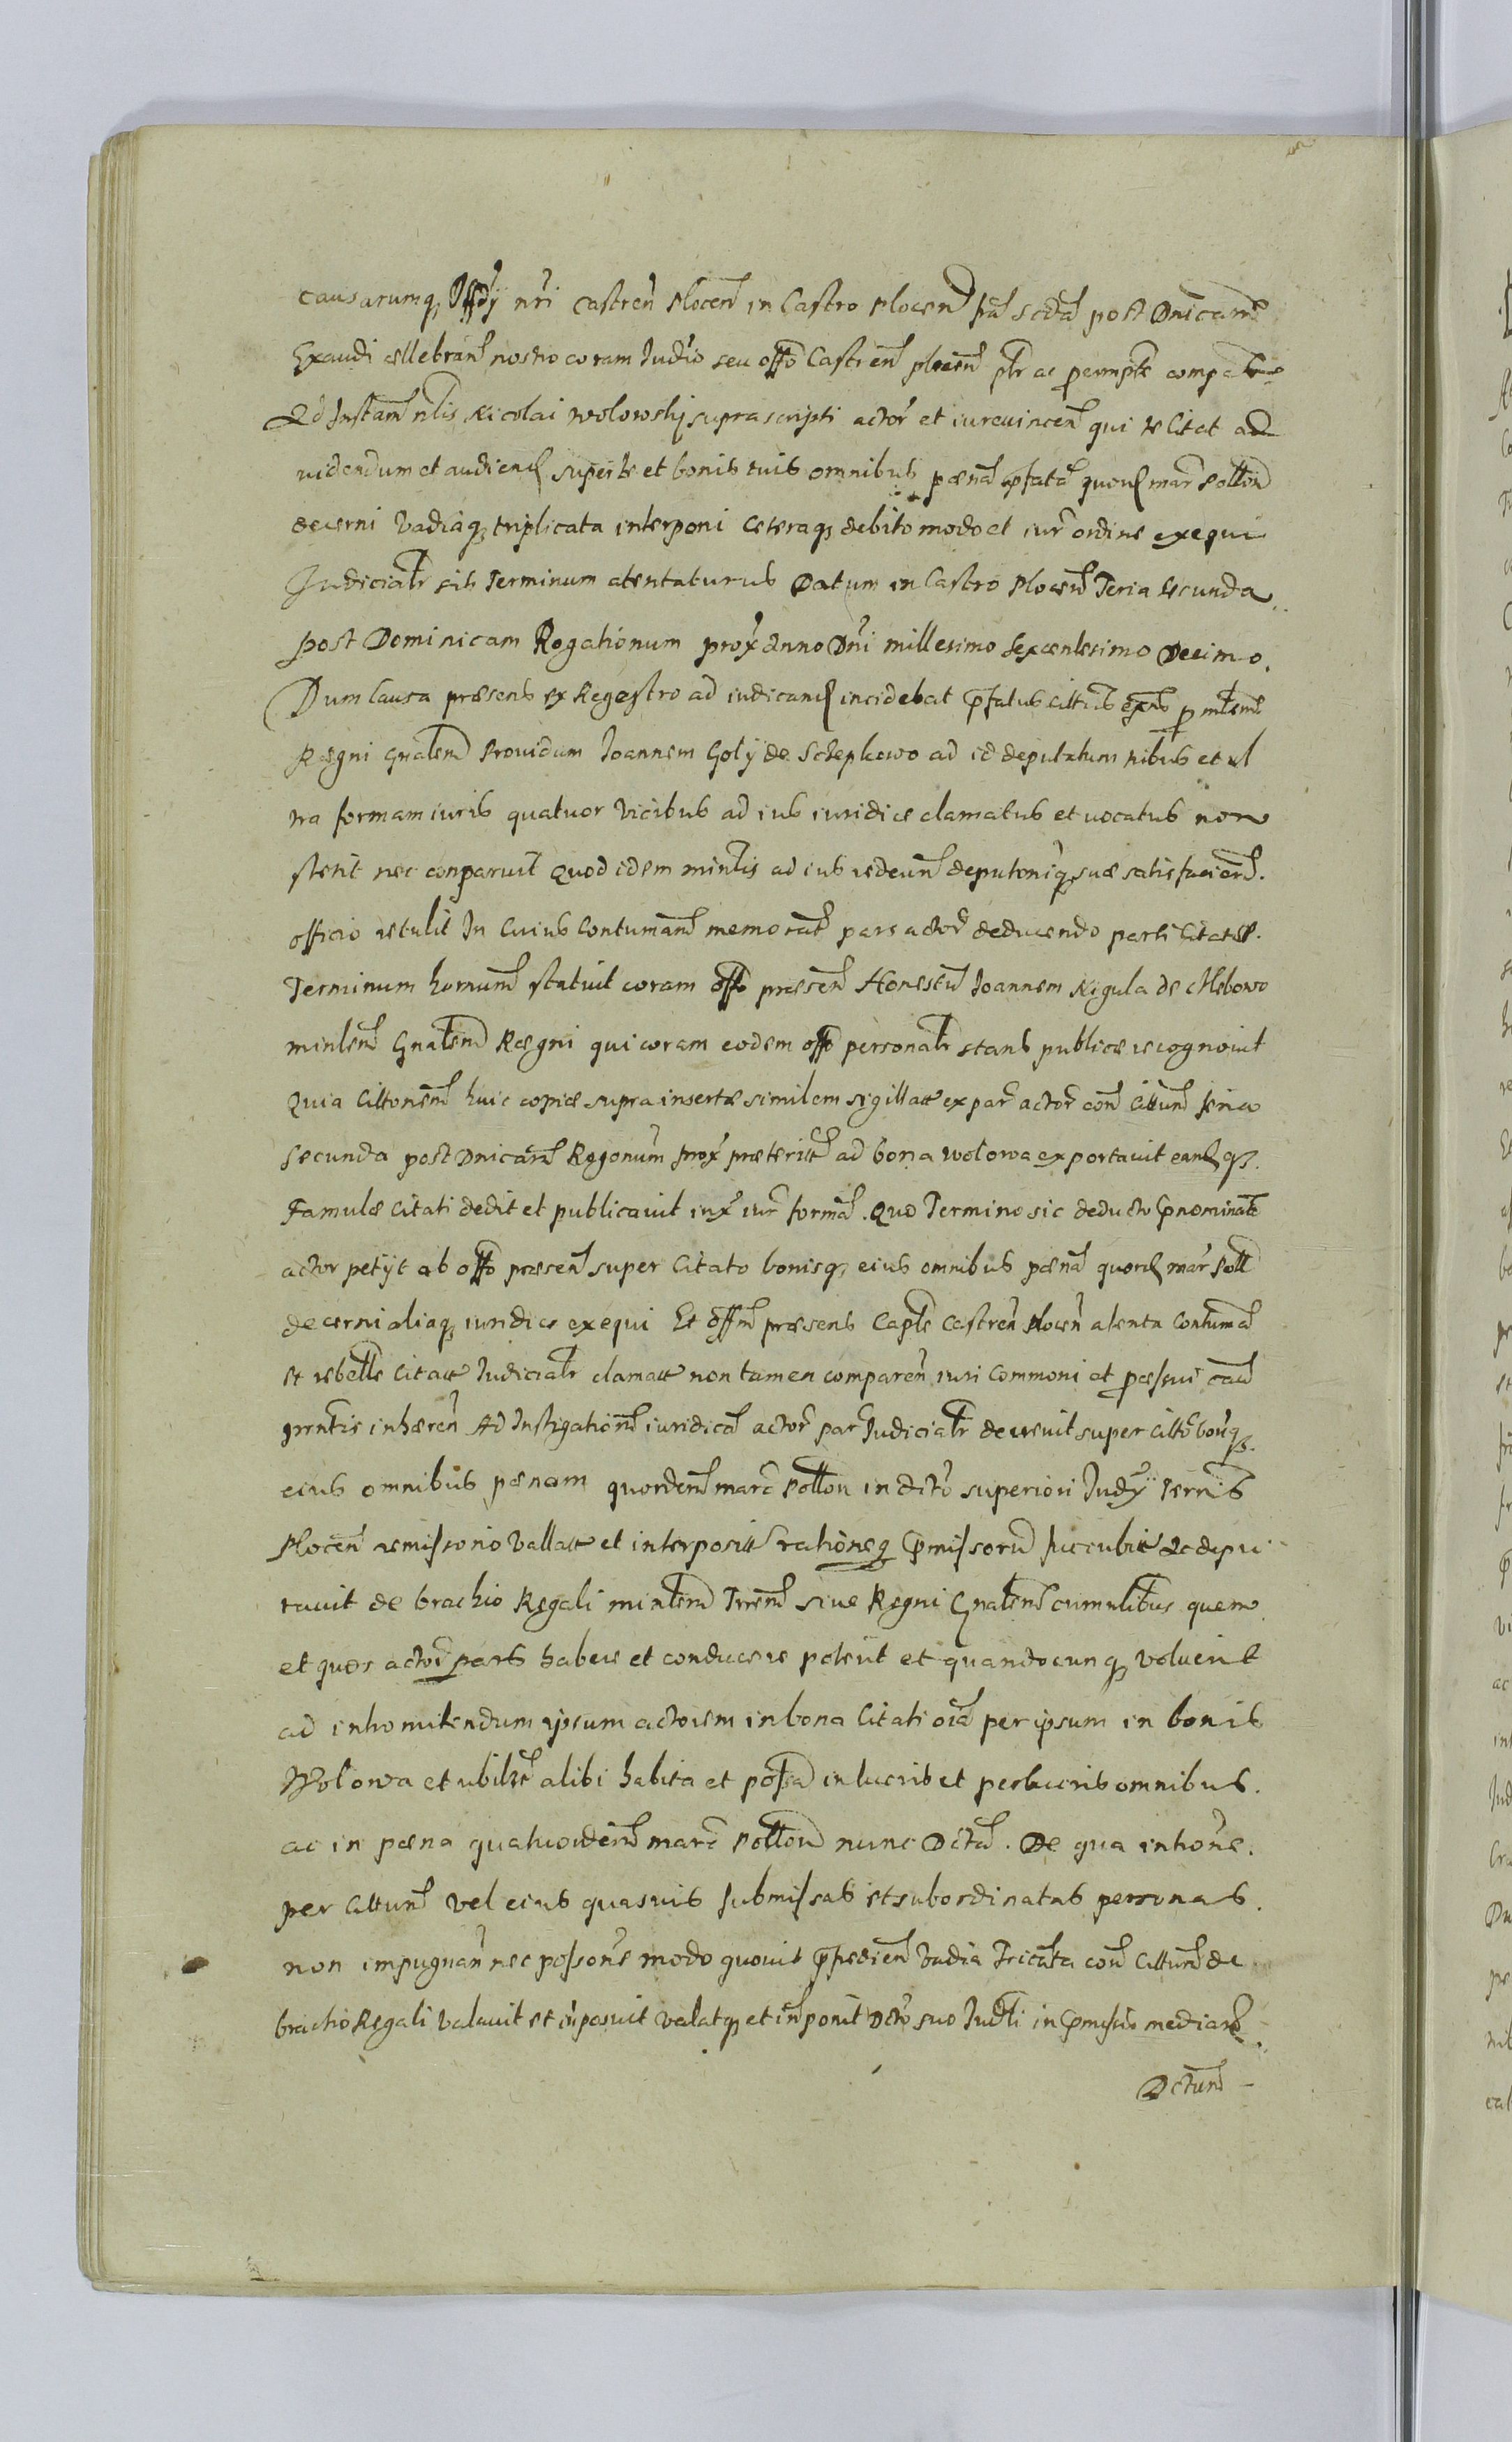 causarumq, Offÿ nri castren Plocen in Castro Plocen fra scda post Dnicam
Exaudi cellebran nostro coram Judio seu offo Castren plocen pltr ac perempte compa
Ad Instam nlis Nicolai Wolowskj suprascripti actor et iurevincen qui te citat ad
videndum et audien super te et bonis tuis omnibus pænã pfatã quord mar Potton
decerni Vadiaq, triplicata interponi ceteraq, debito modo et iur ordine exequi
Judicialr sis Terminum atentaturus Datum in Castro Plocen Feria secunda
post Dominicam Rogationum prox Anno Dni millesimo sexcentesimo Decimo.
Dum Causa præsens ex Regestro ad iudican incidebat pfatus citts p mlem
Regni Gnalem Providum Joannem Goly de Sczepkowo ad id deputatum nibus et ul
tra formam iuris quatuor vicibus ad ius iuridice clamatus et vocatus non
stetit nec conparuit Quod idem minlis ad ius redeun deputoniq, suæ satisfacien.
officio retulit In Cuius Contuman memorat pars actor deducendo parti citatæ.
Terminum hornum statuit coram offo præsen Honestu Joannem Nigula de Chlebowo
minlem Gnalem Regni qui coram eodem offo personalr stans publice recognovit
Quia Cittonem huic copiæ supra insertæ similem sigillatt ex par actor con cittum feria
secunda post Dnicam Rogonum prox præteritt ad bona Wolowa exportavit eanq,.
Famulæ Citati dedit et publicavit iux iur formã. Quo Termino sic deducto pnominats
actor petÿt ab offo præsen super Citato bonisq, eius omnibus pænã quord mar Pott
decerni aliaq, iuridice exequi Et offm præsens Caple Castren Plocen atenta Contumã
et rebelle citatt Judicialr clamatt non tamen comparen iuri Commoni et
inhæren Ad Instigationem iuridicã actor par Judicialr decrevit super citto boniq,.
eius omnibus pænam quorden marc Potton in dcto superiori Judÿ terris
Plocen remissorio Vallatt et interpositt rationeq pmissoru succubitt Ac depu
tavit de brachio Regali minlem Trren sive Regni Gnalem cum nlibus quem
et quos actor pars habere et conducere poterit et quandocunq, voluerit
ad intromitendum ipsum actorem in bona Citati oia per ipsum in bonis
Wolowa et ubilet alibi habita et possa in lucris et perlucris omnibus.
ac in pæna quatuorden marc Potton nunc Dctã. De qua intione.
per Cittum vel eius quasvis submissas et subordinatas personas.
non impugnan nec possone modo quovis ppedien Vadia Tricata con Cittum de
brachio Regali Valavit et inposuit valatq, et inponit Dcto suo Judli in pmissis median
Dctum